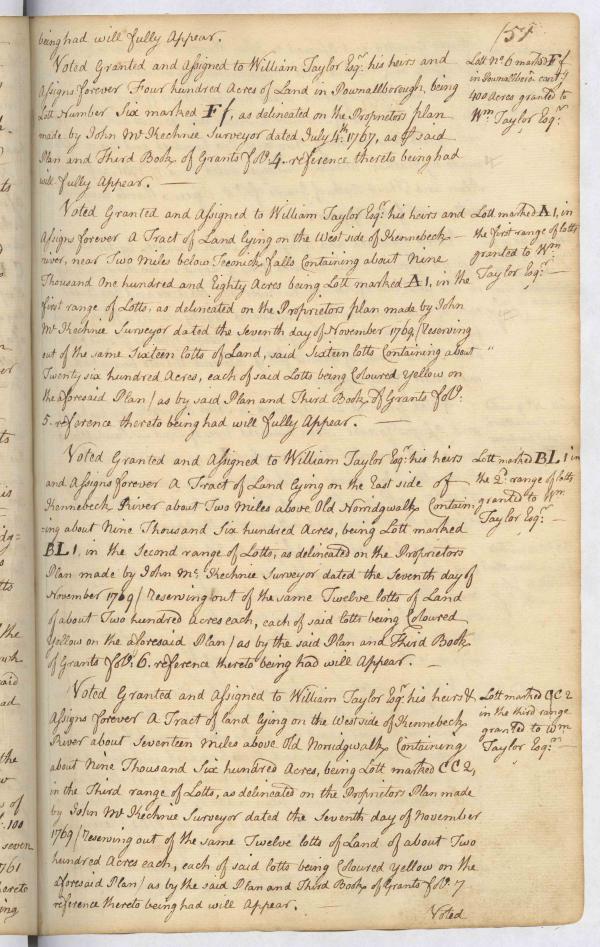 being had will fully Appear.
Voted Granted and Assigned to William Taylor Esqr. his heirs and
Assigns forever Four hundred Acres of Land in Pownallborough, being
Lott Number Six marked Ff, as delineated on the Proprietors plan
made by John McKechnie Surveyor dated July 4th. 1767, as P said
Plan and Third Book of Grants folo. 4. reference thereto being had
will fully Appear. —
Voted Granted and Assigned to William Taylor Esqr. his heirs and
Assigns forever A Tract of Land lying on the West side of Kennebeck
river, near Two Miles below Teconick falls Containing about Nine
Thousand One hundred and Eighty Acres being Lott marked A1, in the
first range of Lotts, as delineated on the Proprietors plan made by John
Mc Kechnie Surveyor dated the Seventh day of November 1769/Reserving
out of the same Sixteen lotts of Land, said Sixteen lotts Containing about
Twenty six hundred Acres, each of said Lotts being Coloured Yellow on
the aforesaid Plan/ as by said Plan and Third Book of Grants folo.
5. reference thereto being had will fully Appear. —
Voted Granted and Assigned to William Taylor Esqr. his heirs
and Assigns forever A Tract of Land lying on the East side of
Kennebeck River about Two Miles above Old Norridgwalk Contain
=ing about Nine Thousand Six hundred Acres, being Lott marked
BL1, in the Second range of Lotts, as delineated on the Proprietors
Plan made by John Mc Kechnie Surveyor dated the Seventh day of
November 1769/ Reserving out of the same Twelve lotts of Land
of about Two hundred Acres each, each of said lotts being Coloured
Yellow on the aforesaid Plan/ as by the said Plan and Third Book
of Grants folo. 6. reference thereto being had will Appear. —
Voted Granted and Assigned to William Taylor Esqr. his heirs &
Assigns forever A Tract of land lying on the West side of Kennebeck
River about Seventeen Miles above Old Norridgwalk Containing
about Nine Thousand Six hundred Acres, being Lott marked CC2,
in the Third range of Lotts, as delineated on the Proprietors Plan made
by John Mc Kechnie Surveyor dated the Seventh day of November
1769/Reserving out of the same Twelve lotts of Land of about Two
hundred Acres each, each of said lotts being Coloured Yellow on the
aforesaid Plan/ as by the said Plan and Third Book of Grants folo. 7
reference thereto being had will Appear. —
Voted
Lott No. 6 marked Ff
in Pownallboro: contg
400 Acres granted to
Wm. Taylor Esqr.
Lott marked A1, in
the first range of lotts
granted to Wm
Taylor Esqr. —
Lott marked BL1 in
the 2d. range of lotts
granted to Wm
Taylor Esqr. —
Lott marked CC2
in the third range
granted to Wm
Taylor Esqr. —